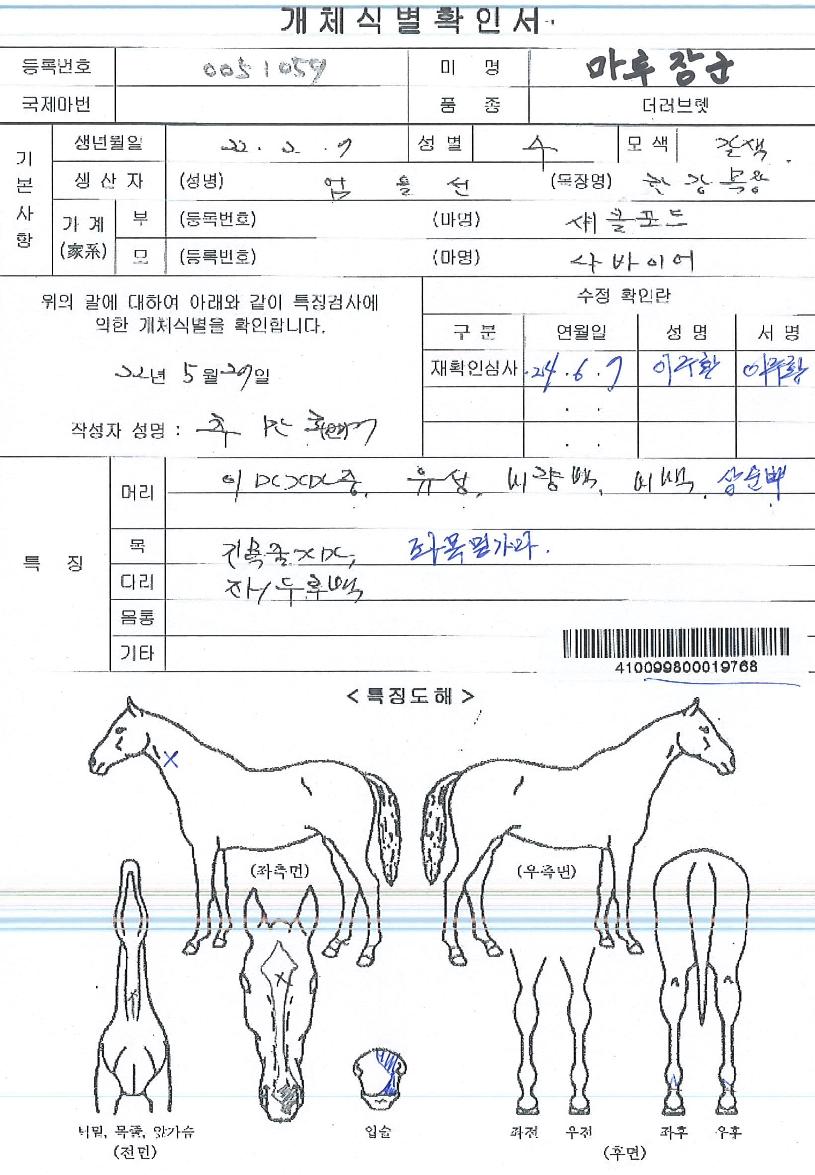 개체식별확인서
등록번호 0051059 마 명 마루장군
국제마번 품 종 더러브렛
기본사항
생년월일 22. 2. 9 성별 수 모색 갈색
생산자 (성명) (목장명)
가계(家系) 부 (등록번호) (마명) 섀클포드
모 (등록번호) (마명) 사바이어
위의 말에 대하여 아래와 같이 특징검사에
의한 개체식별을 확인합니다.
22년 5월 29일
작성자 성명 :
수정 확인란
구분 연월일 성명 서명
재확인심사 '24. 6. 7 이주환 이주환
특징
머리 유성, 비량백, 비백, 상순백
목 좌목필가마.
다리 좌/두후백
몸통
기타
410099800019768
<특징도해>
(좌측면) (우측면)
턱밑, 목줄, 앞가슴 입술 좌전 우전 좌후 우후
(전면) (후면)